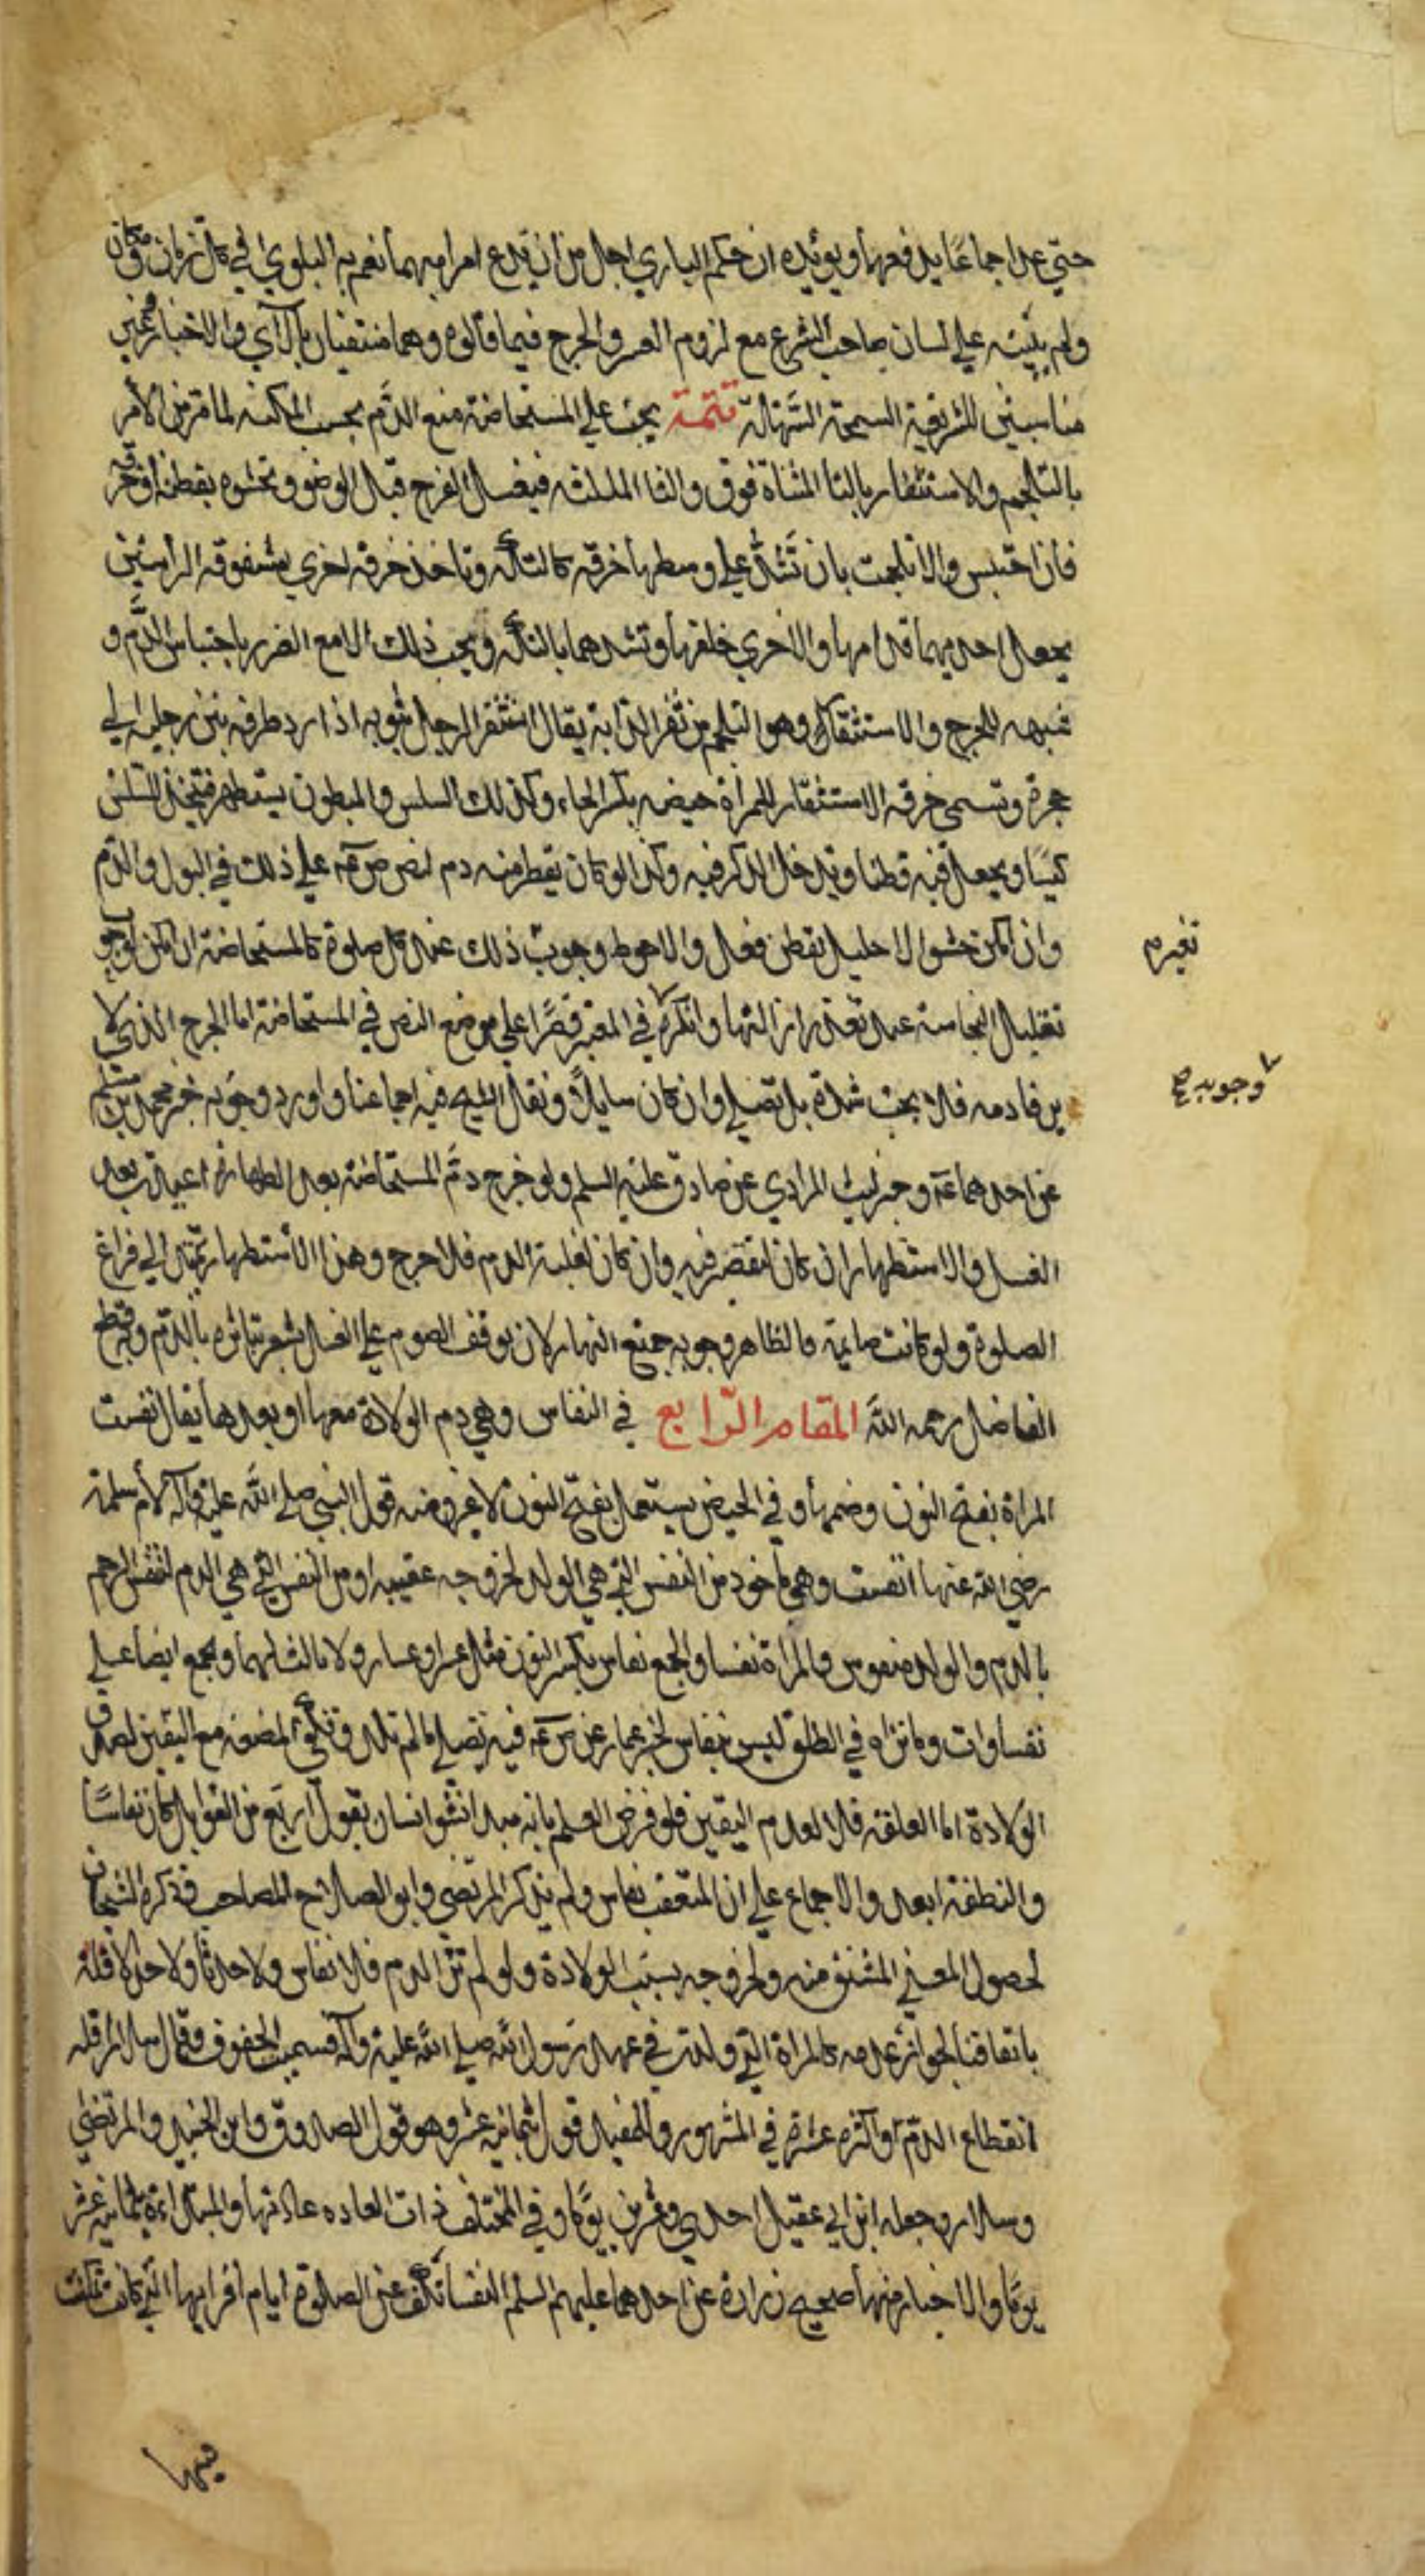 حتي عد اجماعًا يدفعها ويؤيده ان حكم الباري اجل من ان يدع امرا مبهما تعم به البلوي في كل زمان ومكان
ولم يبينه علي لسان صاحب الشرع مع لزوم العسر والحرج فيما قالوه وهما منتفيان بالآي والاخبار غير
مناسبين للشريعة السمحة السهلة تتمة يجب علي المستحاضة منع الدم بحسب المكنة لما مر من الأمر
بالتلجم والاستثفار بالتا المثناة فوق والثا المثلثه فيغسل الفرج قبل الوضو وتحشوه بقطنة او خرقه
فان احتبس والا تلجمت بان تشد علي وسطها خرقه كالتكه وتاخذ خرقه اخري مشقوقه الراسين
يجعل احديهما قدامها والاخري خلفها وتشدهما بالتكه ويجب ذلك الا مع الضرر باحتباس الدم و
شبهه للحرج والاستثفار وهو التلجم من ثفر الدابة يقال استثفر الرجل بثوبه اذا رد طرفه بين رجليه الي
حجزة وتسمي خرقه الاستثفار للمراة حيضه بكسر الحاء وكذلك السلس والمبطون يستظهر فيتخذ السلس
كيسًا ويجعل فيه قطنا ويدخل الذكر فيه وكذا لو كان يقطر منه دم لنص ص عم علي ذلك في البول والدم
وان امكن حشو الاحليل بقطن فعل والاحوط وجوب ذلك عند كل صلوة كالمستحاضة ان امكن لوجوب
تقليل النجاسة عند تعذر ازالتها وانكره في المعتبر قصرًا علي موضع النص في المستحاضة اما الجرح الذي لا
يرقا دمه فلا يجب شده بل تصلي وان كان سايلًا ونقل الشيخ فيه اجماعنا واورد وجوبه خبر محمد بن مسلم
عن احدهما عم وخبر ليث المرادي عن صادق عليه السلم ولو خرج دم المستحاضة بعد الطهارة اعيدت بعد
الغسل والاستظهار ان كان لتقصير فيه وان كان لغلبة الدم فلا حرج وهذا الأستظهار يمتد الي فراغ
الصلوة ولو كانت صايمة فالظاهر وجوبه جميع النهار لان توقف الصوم علي الغسل يشعر بتاثره بالدم وبه قطع
الفاضل رحمه الله المقام الرابع في النفاس وهي دم الولادة معها او بعدها يقال نفست
المراة بفتح النون وضمها وفي الحيض يستعمل بفتح النون لا غير ومنه قول النبي صلي الله عليه وآله لأم سلمة
رضي الله عنها انفست وهي ماخوذ من النفس التي هي الولد لخروجه عقيبه او من النفس التي هي الدم لتنفس الرحم
بالدم والولد منفوس والمراة نفسا والجمع نفاس بكسر النون مثل عشرا وعشار ولا ثالث لهما ويجمع ايضا علي
نفساوات وما تراه في الطلق ليس بنفاس لخبر عمار عن ص عم فيه تصلي مالم تلد وتكفي المضغه مع اليقين لصدق
الولادة اما العلقه فلا لعدم اليقين فلو فرض العلم بانه مبدا نشو انسان بقول اربع من القوابل كان نفاسًا
والنطفة ابعد والاجماع علي ان المتعقب نفاس ولم يذكر المرتضي وابو الصلاح المصاحب وذكره الشيخان
لحصول المعني المشتق منه ولخروجه بسبب الولادة ولو لم تر الدم فلا نفاس ولا حدثا ولا حد لاقله
باتفاقنا لجواز عدمه كالمراة التي ولدت في عهد رسول الله صلي الله عليه وآله فسميت الجفوف وقال سلار اقله
انقطاع الدم واكثره عشرة في المشهور وللمفيد قول بثمانيه عشر وهو قول الصدوق وابن الجنيد والمرتضي
وسلار وجعله ابن ابي عقيل احدي وعشرين يومًا وفي المختلف ذات العاده عادتها والمبتداءة ثمانيه عشر
يومًا والاخبار منها صحيح زرارة عن احدهما عليهم السلم النفسا تكف عن الصلوة ايام اقرايها التي كانت تمكث
وجوبه صح
فيها